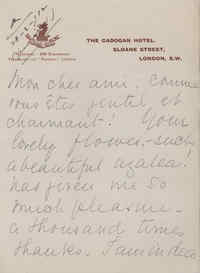 THE CADOGAN HOTEL,
SLOANE STREET,
LONDON, S.W.
Mon cher ami. Comme
vous êtes gentil et
charmant! Your
lovely flower - such
a beautiful azalea!
has given me so
much pleasure -
a thousand times
thanks. I am indeed